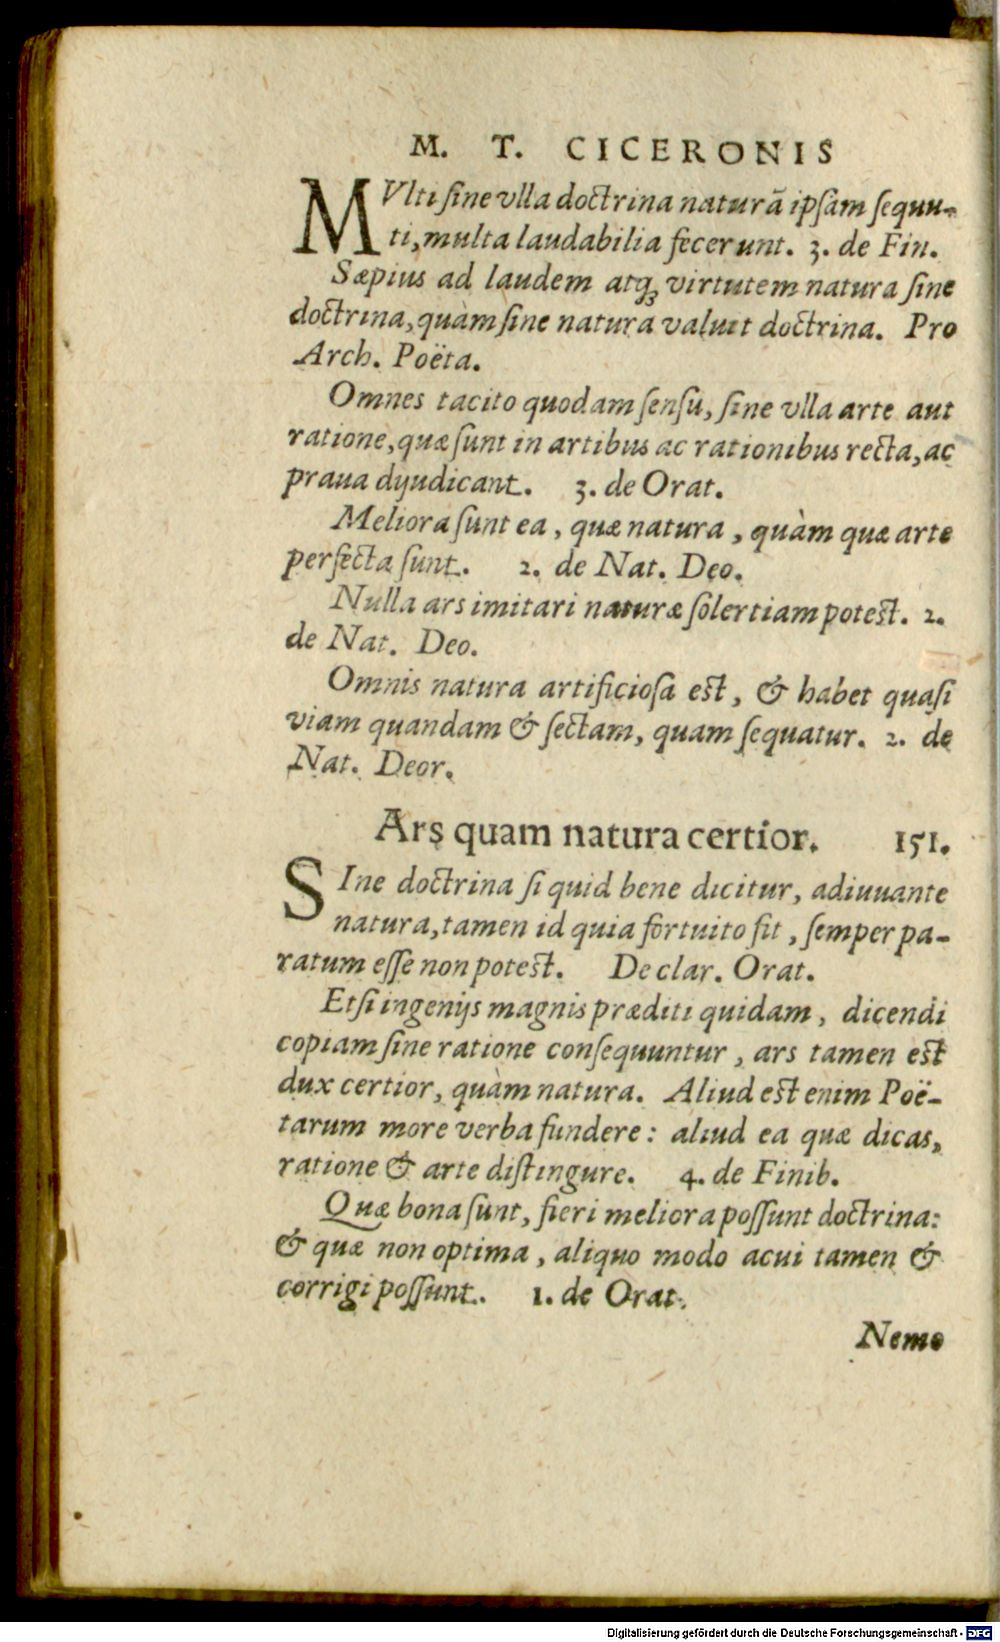 M. T. CICERONIS
MVlti ſine vlla doctrina naturã ipſam ſequu-
ti, multa laudabilia fecerunt. 3. de Fin.
Sæpius ad laudem atq; virtutem natura ſine
doctrina, quàm ſine natura valuit doctrina. Pro
Arch. Poëta.
Omnes tacito quodam ſenſu, ſine vlla arte aut
ratione, quæ ſunt in artibus ac rationibus recta, ac
praua dijudicant. 3. de Orat.
Meliora ſunt ea, quæ natura, quàm quæ arte
perfecta ſunt. 2. de Nat. Deo.
Nulla ars imitari naturæ ſolertiam poteſt. 2.
de Nat. Deo.
Omnis natura artificioſa eſt, & habet quaſi
viam quandam & ſectam, quam ſequatur. 2. de
Nat. Deor.
Ars quam natura certior. 151.
SIne doctrina ſi quid bene dicitur, adiuuante
natura, tamen id quia fortuito fit, ſemper pa-
ratum eſſe non poteſt. De clar. Orat.
Etſi ingenijs magnis præditi quidam, dicendi
copiam ſine ratione conſequuntur, ars tamen eſt
dux certior, quàm natura. Aliud eſt enim Poë-
tarum more verba fundere: aliud ea quæ dicas,
ratione & arte diſtingure. 4. de Finib.
Quæ bona ſunt, fieri meliora poſſunt doctrina:
& quæ non optima, aliquo modo acui tamen &
corrigi poſſunt. 1. de Orat.
Nemo
Digitalisierung gefördert durch die Deutsche Forschungsgemeinschaft - DFG